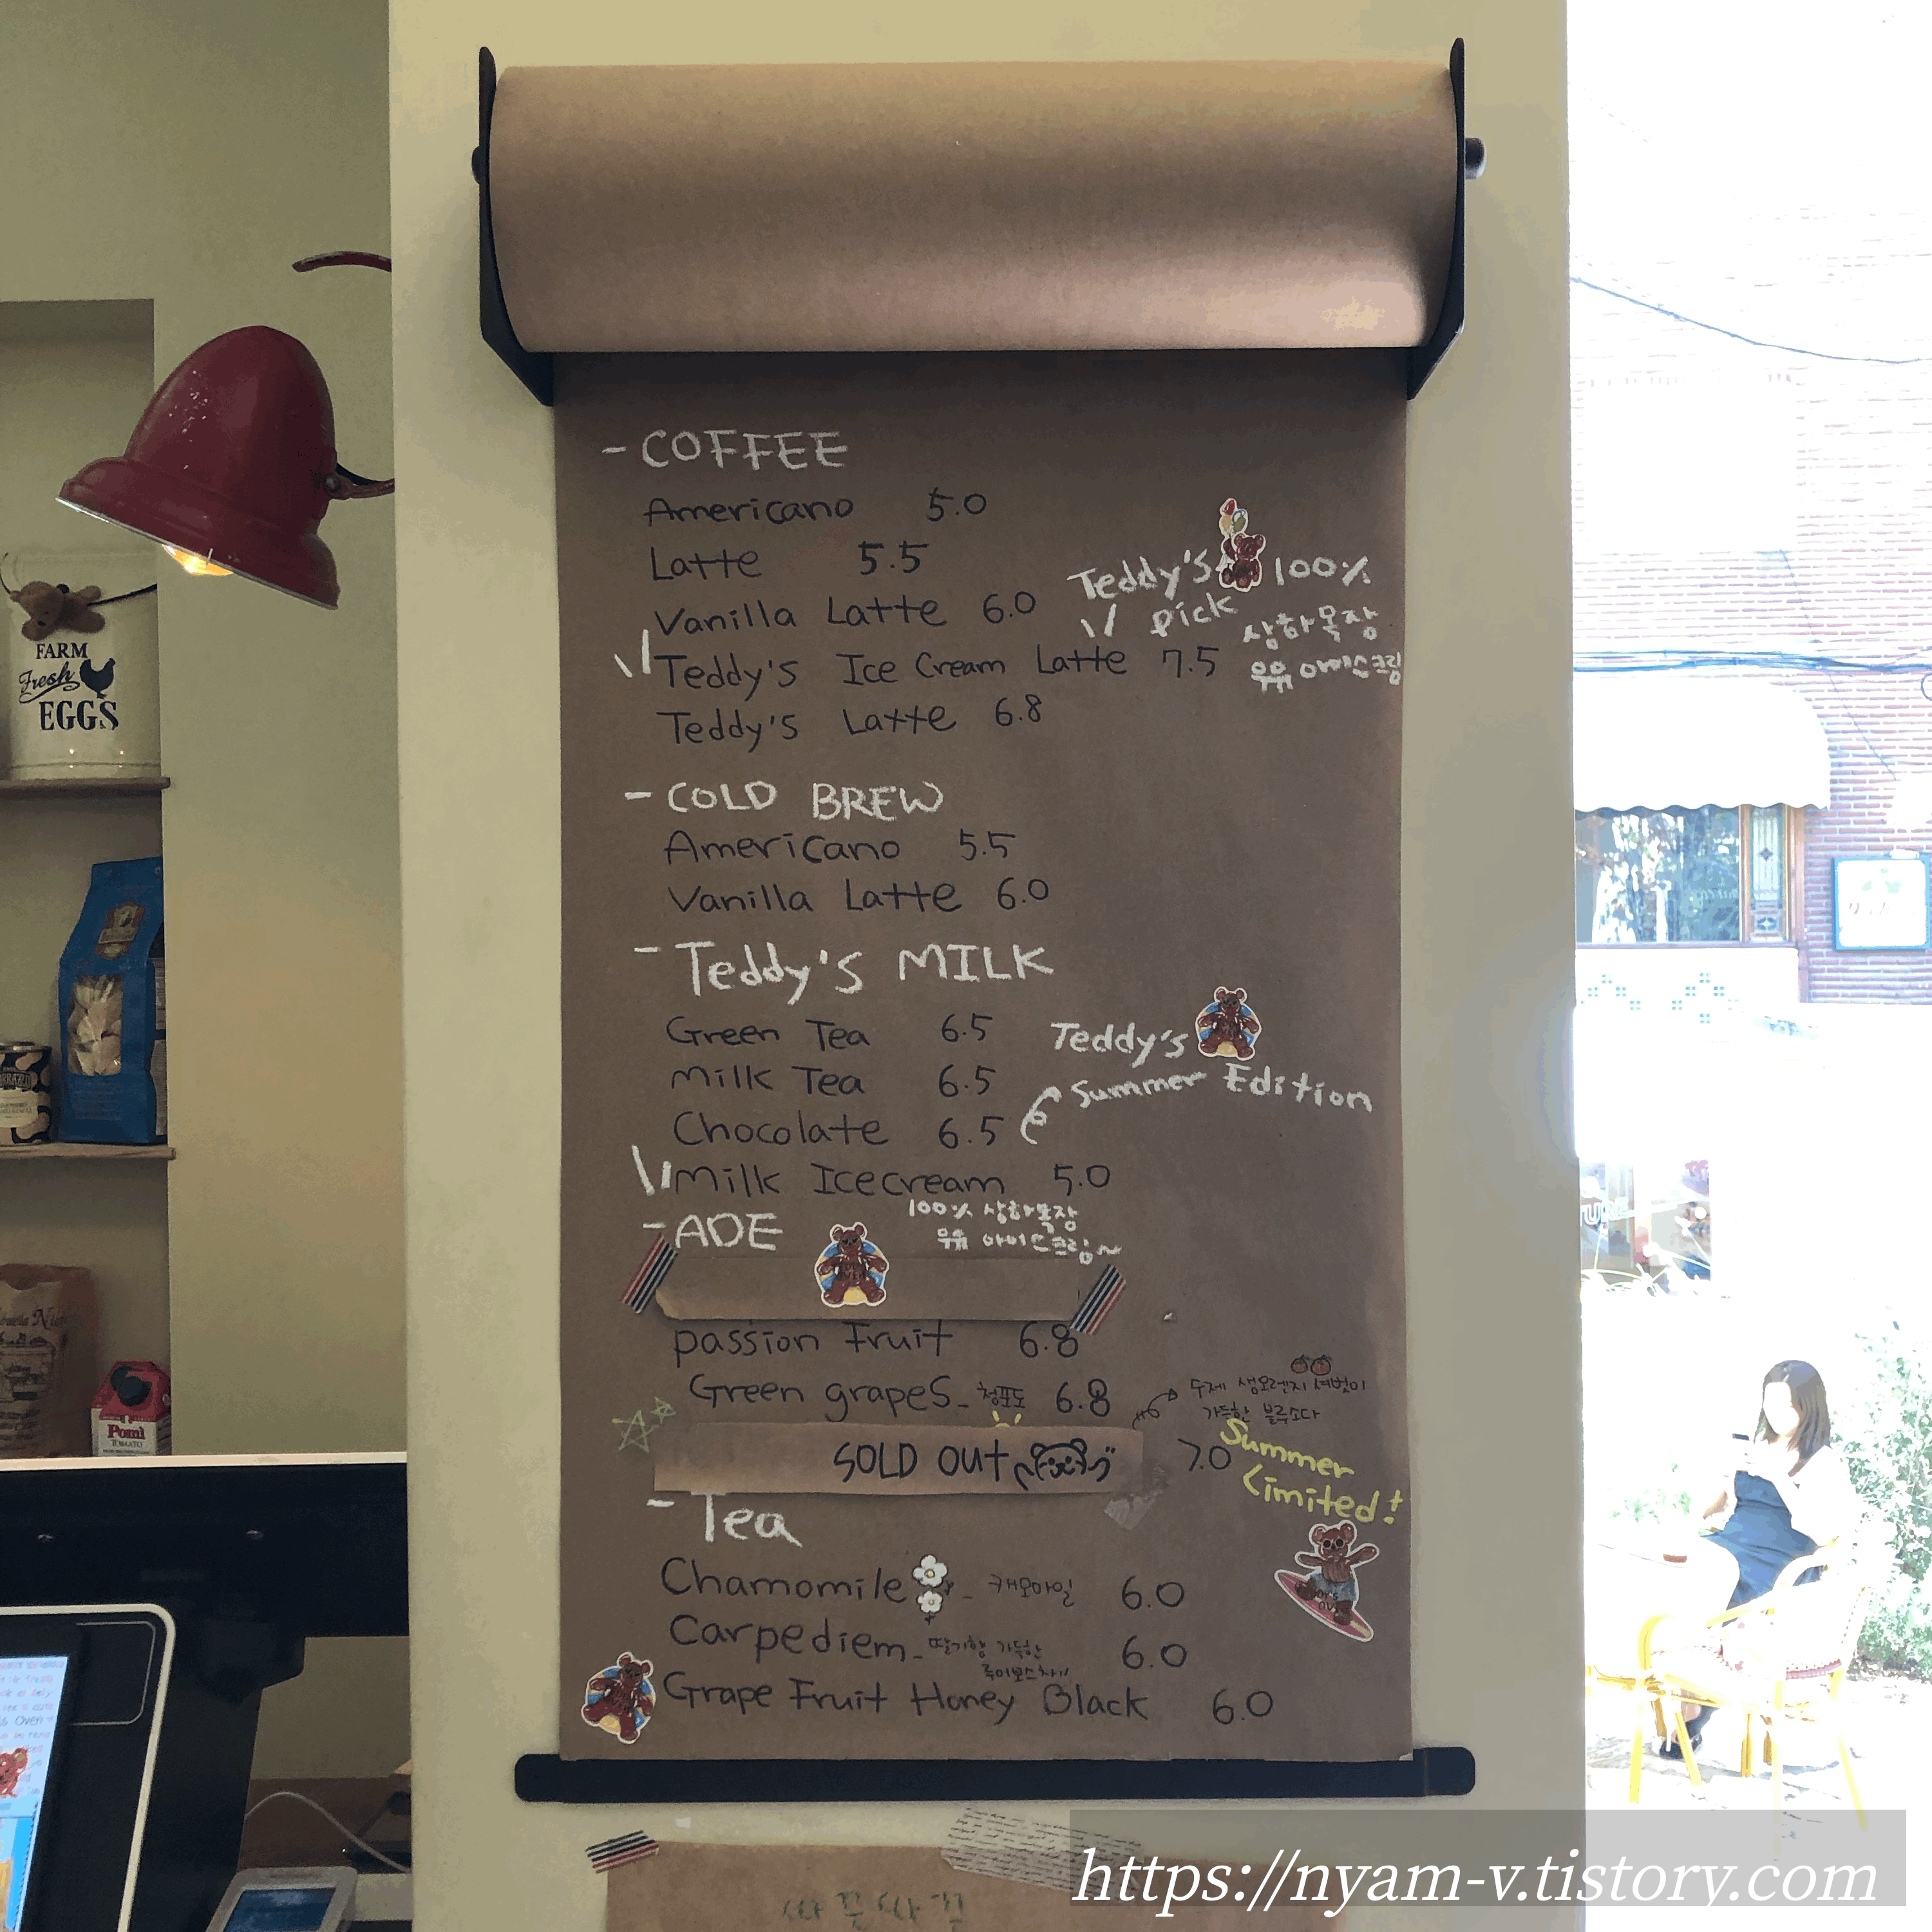 - COFFEE
Americano 5.0
Latte 5.5
Vanilla Latte 6.0
Teddy's pick
100% 상하목장 우유 아이스크림
Teddy's Ice Cream Latte 7.5
Teddy's Latte 6.8
- COLD BREW
Americano 5.5
Vanilla Latte 6.0
- Teddy's MILK
Green Tea 6.5
Milk Tea 6.5
Chocolate 6.5
Teddy's
Summer Edition
Milk Icecream 5.0
100% 상하목장
우유 아이스크림~
- ADE
passion Fruit 6.8
Green grapes - 청포도 6.8
수제 생오렌지 셔벗이
가득한 블루소다
SOLD OUT 7.0
Summer
Limited!
- Tea
Chamomile - 캐모마일 6.0
Carpediem - 딸기향 가득한 루이보스차 6.0
Grape Fruit Honey Black 6.0
FARM
Fresh
EGGS
Pomì
TOMATO
https://nyam-v.tistory.com